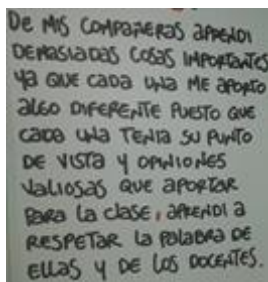 De MIS COMPAÑERAS APRENDI
DEMASIADAS COSAS IMPORTANTES
YA QUE CADA UNA ME APORTO
ALGO DIFERENTE PUESTO QUE
CADA UNA TENIA SU PUNTO
DE VISTA Y OPINIONES
VALIOSAS QUE APORTAR
PARA LA CLASE, APRENDI A
RESPETAR LA PALABRA DE
ELLAS Y DE LOS DOCENTES.